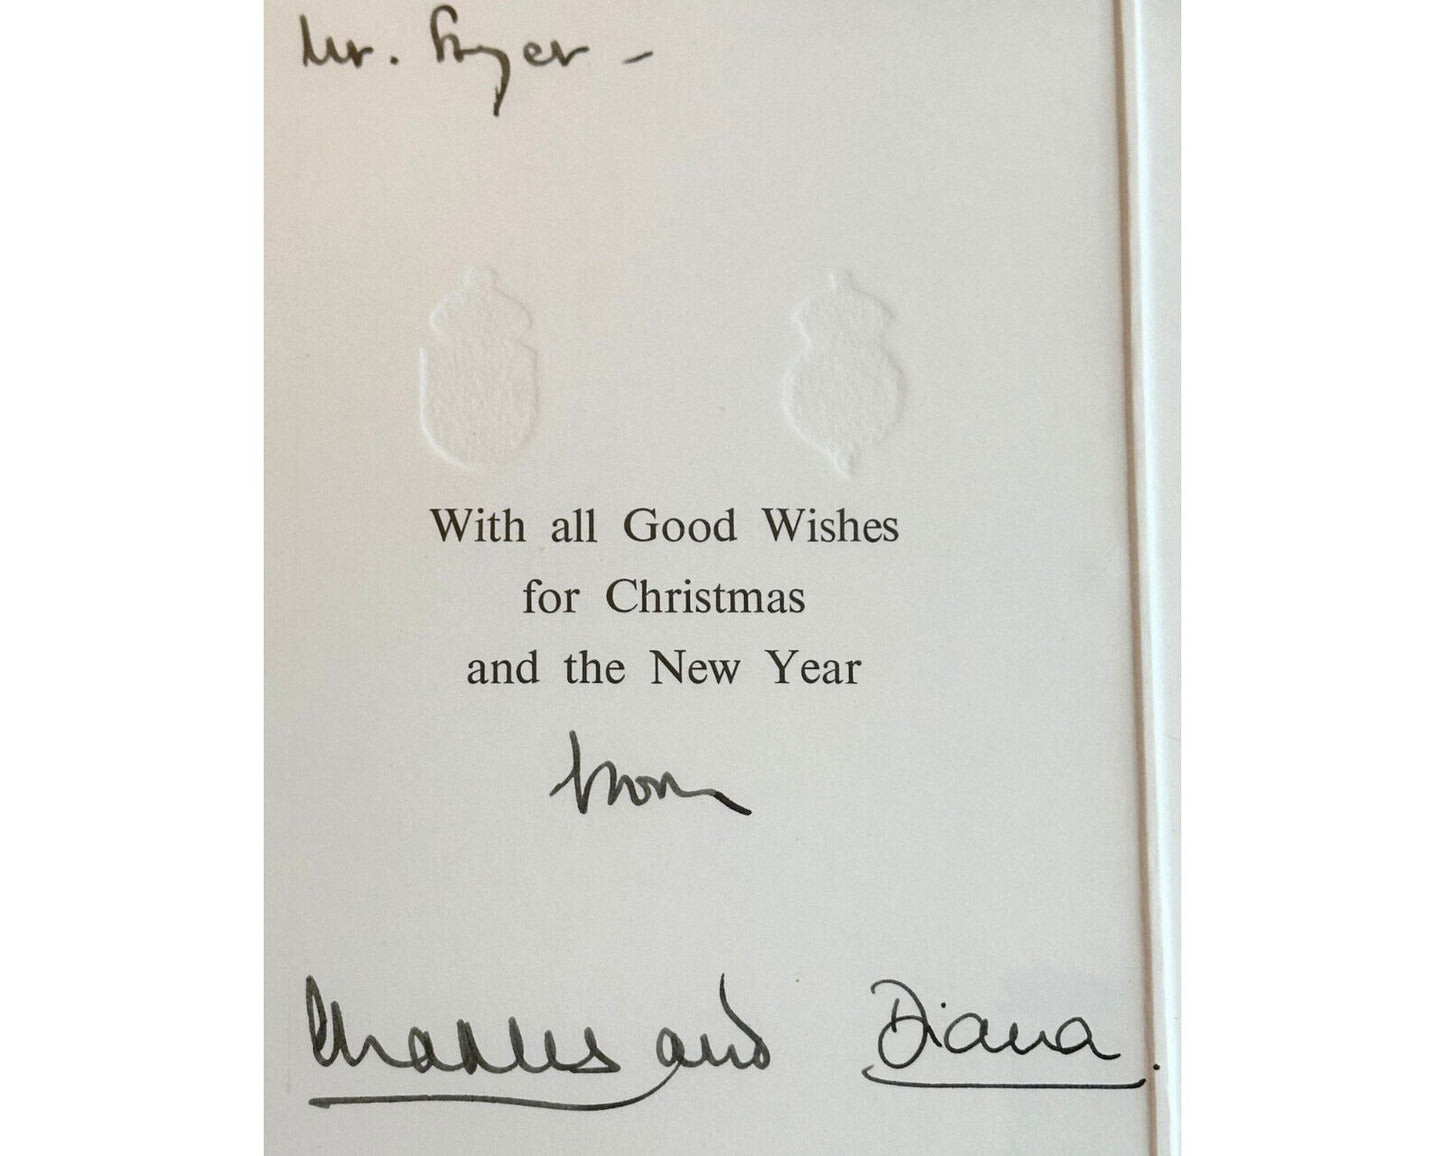 Mr. Fryer –
With all Good Wishes
for Christmas
and the New Year
from
Charles and Diana.